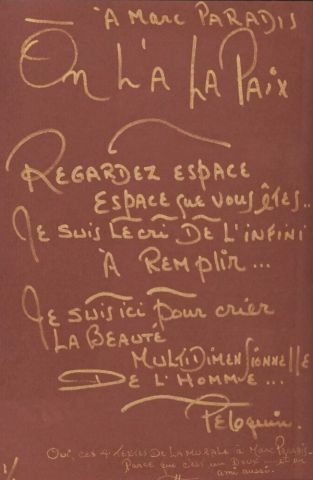 À MARC PARADIS
ON L'A LA PAIX
REGARDEZ ESPACE
ESPACE QUE VOUS ÊTES...
JE SUIS LE CRI DE L'INFINI
À REMPLIR...
JE SUIS ICI POUR CRIER
LA BEAUTÉ
MULTIDIMENSIONNELLE
DE L'HOMME...
PÉLOQUIN.
OUI, CES 4 TEXTES DE LA MURALE À MARC PARADIS.
PARCE QUE C'EST UN DOUX ET UN
AMI AUSSI.
1/